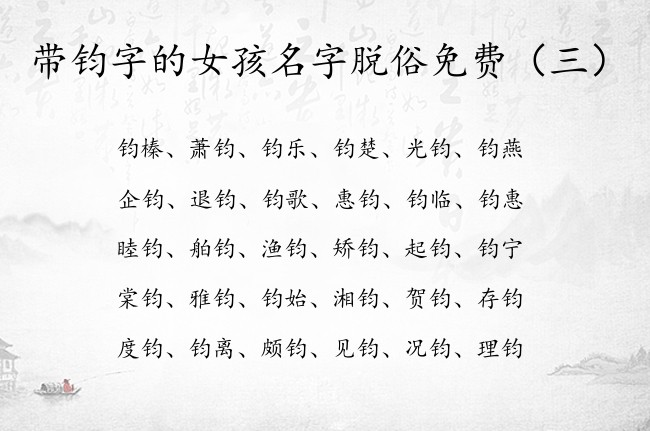 带钧字的女孩名字脱俗免费（三）
钧榛、萧钧、钧乐、钧楚、光钧、钧燕
企钧、退钧、钧歌、惠钧、钧临、钧惠
睦钧、舶钧、渔钧、矫钧、起钧、钧宁
棠钧、雅钧、钧始、湘钧、贺钧、存钧
度钧、钧离、颇钧、见钧、况钧、理钧